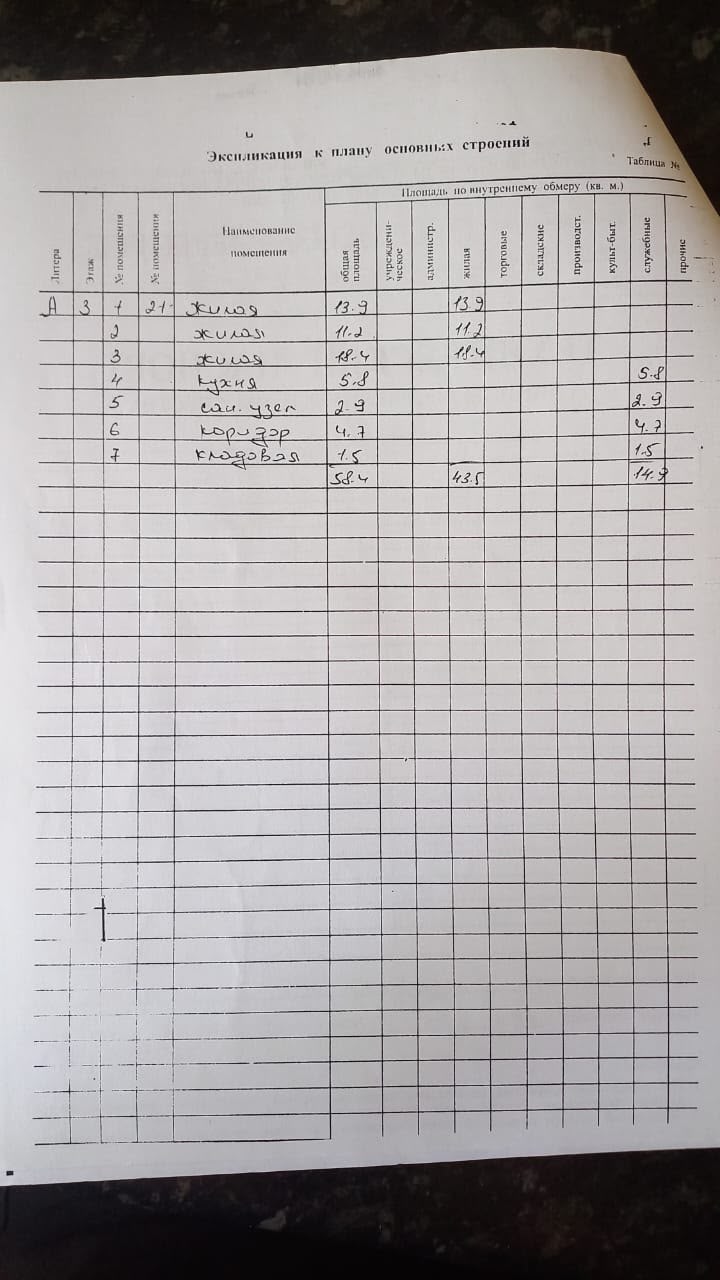 Экспликация к плану основных строений
Таблица №
Площадь по внутреннему обмеру (кв. м.)
Литера
Этаж
№ помещения
№ помещения
Наименование
помещения
общая
площадь
учреждени-
ческое
администр.
жилая
торговые
складские
производст.
культ-быт.
служебные
прочие
А 3 1 21 жилая 13.9 13.9
2 жилая 11.2 11.2
3 жилая 18.4 18.4
4 кухня 5.8 5.8
5 сан. узел 2.9 2.9
6 коридор 4.7 4.7
7 кладовая 1.5 1.5
58.4 43.5 14.9